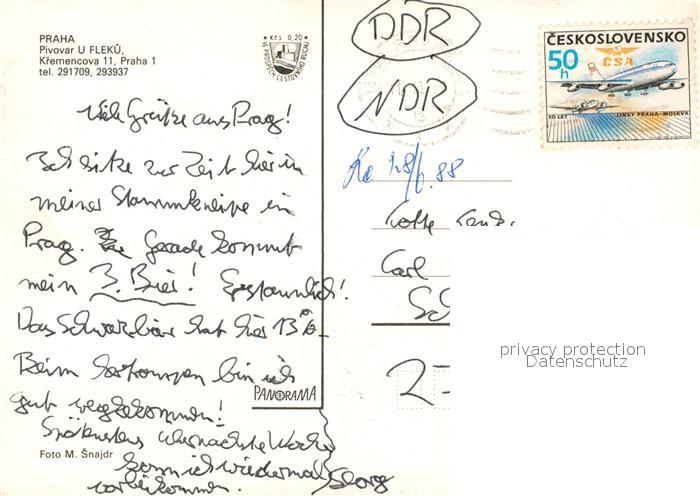 PRAHA
Pivovar U FLEKŮ,
Křemencova 11, Praha 1
tel. 291709, 293937
Kčs 0,20
VE PROSPĚCH CESTOVNÍHO RUCHU
DDR
NDR
ČESKOSLOVENSKO
50 h
ČSA
50 LET LINKY PRAHA-MOSKVA
28/6.88
Lotte
Carl
Viele Grüße aus Prag!
Ich sitze zur Zeit hier in
meiner Stammkneipe in
Prag. Gerade kommt
mein 3. Bier! Erstaunlich!
Das Schwarzbier hat hier 13%
Beim bin ich
gut weggekommen!
Spätestens übernächste Woche
kann ich wiedermal
vorbeikommen.
Georg
PANORAMA
Foto M. Šnajdr
privacy protection
Datenschutz